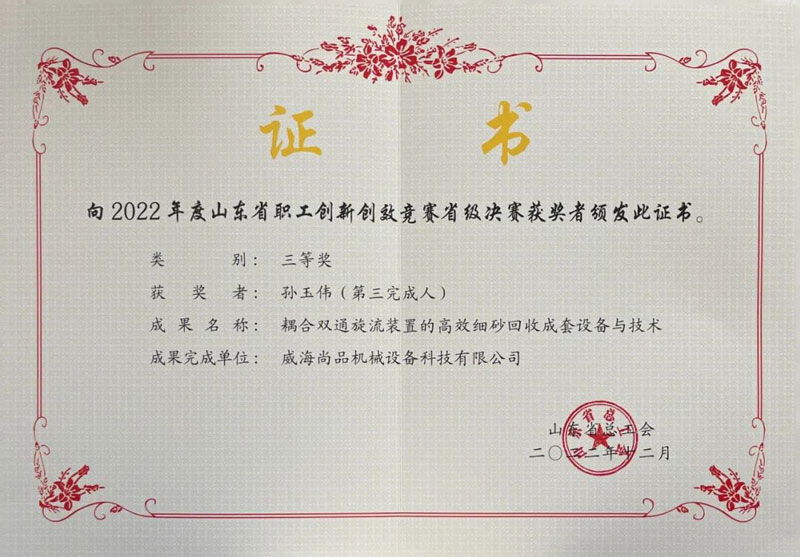 证书
向2022年度山东省职工创新创效竞赛省级决赛获奖者颁发此证书。
类别：三等奖
获奖者：孙玉伟（第三完成人）
成果名称：耦合双通旋流装置的高效细砂回收成套设备与技术
成果完成单位：威海尚品机械设备科技有限公司
山东省总工会
二〇二二年十二月